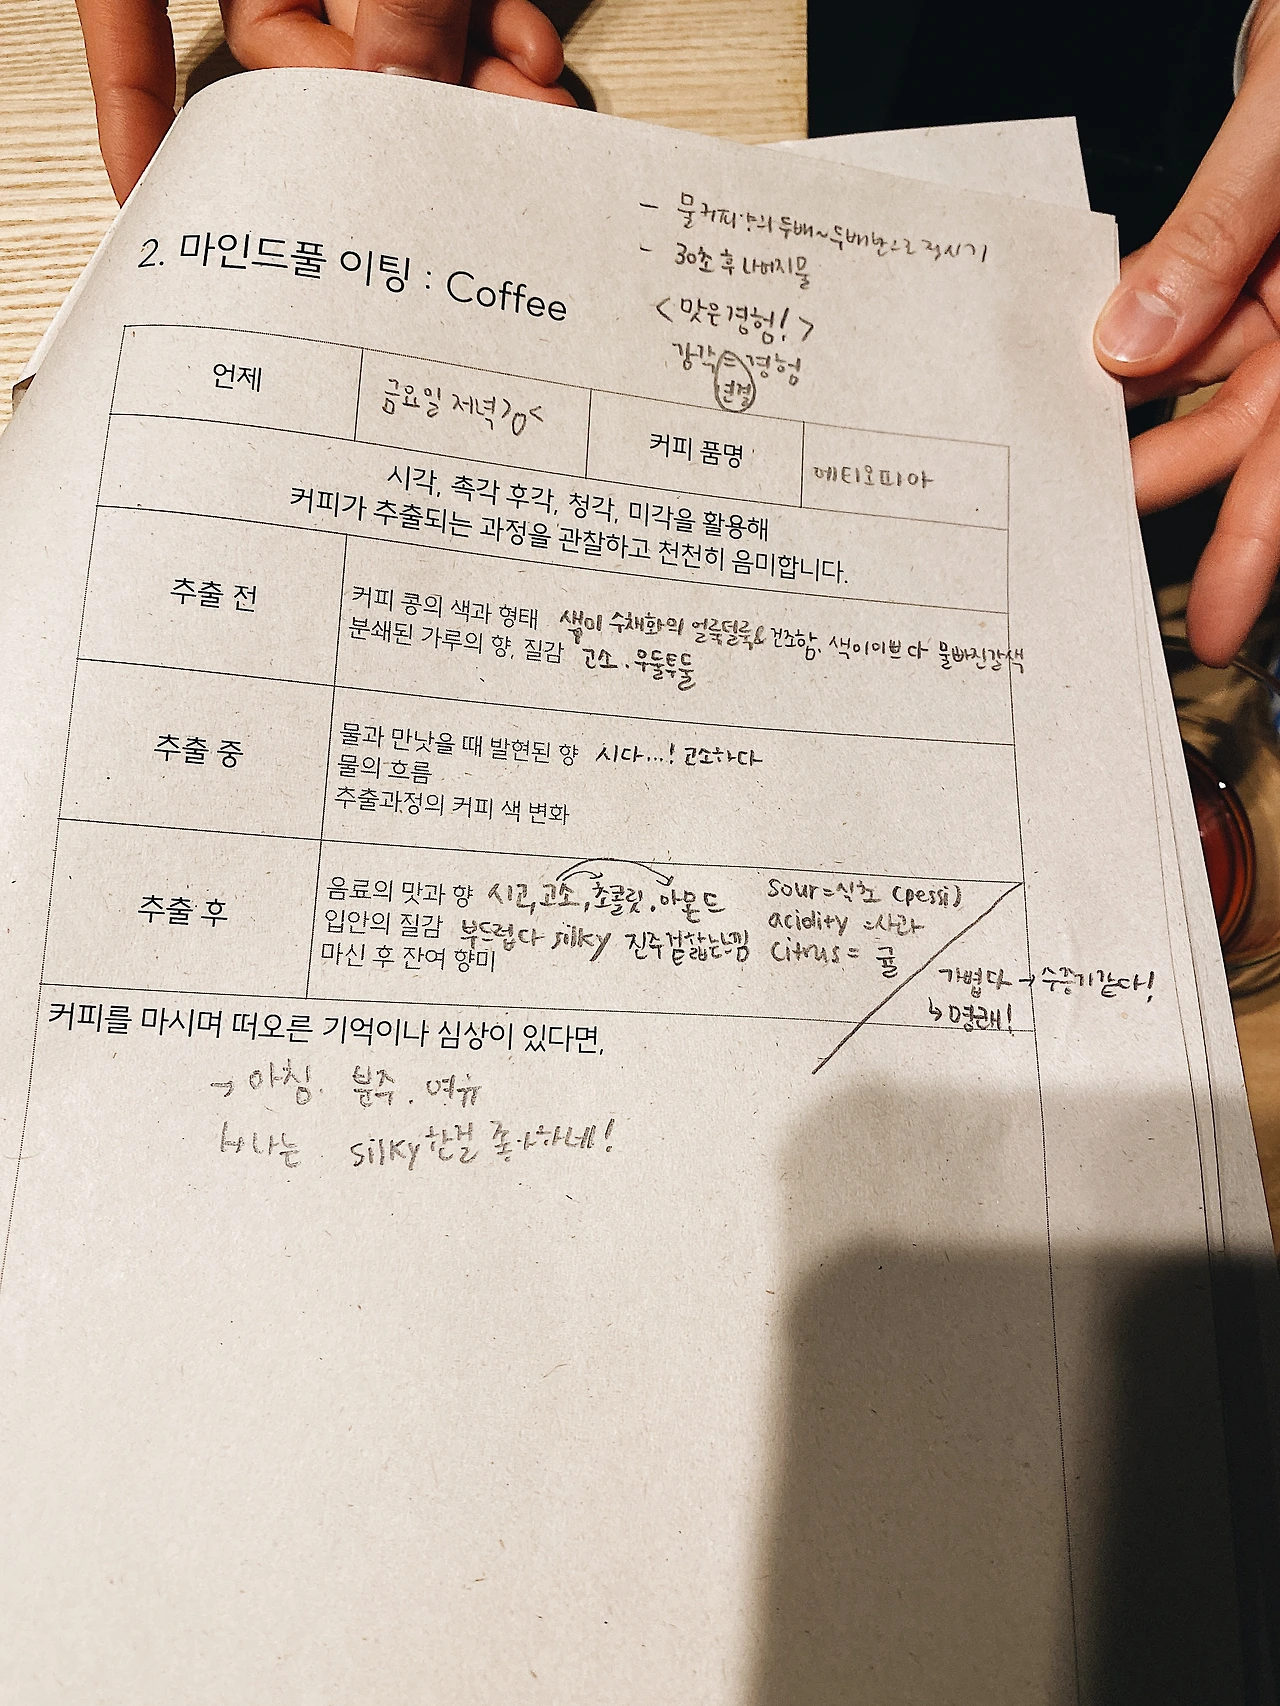 - 물 커피양의 두배~두배반으로 적시기
- 30초 후 나머지물
<맛은경험!>
감각=경험
연결
2. 마인드풀 이팅 : Coffee
언제
금요일 저녁>o<
커피 품명
에티오피아
시각, 촉각 후각, 청각, 미각을 활용해
커피가 추출되는 과정을 관찰하고 천천히 음미합니다.
추출 전
커피 콩의 색과 형태 색이 수채화의 얼룩덜룩& 건조함. 색이이쁘다 물빠진갈색
분쇄된 가루의 향, 질감 고소. 우둘투둘
추출 중
물과 만낫을 때 발현된 향 시다...! 고소하다
물의 흐름
추출과정의 커피 색 변화
추출 후
음료의 맛과 향 시고, 고소, 초콜릿. 아몬드 sour=식초 (pessi)
입안의 질감 부드럽다 silky 진주겉핥는느낌 acidity =사과
마신 후 잔여 향미 citrus= 귤
가볍다→수증기같다!
↳명래!
커피를 마시며 떠오른 기억이나 심상이 있다면,
→ 아침. 분주. 여유
↳나는 silky한걸 좋아하네!